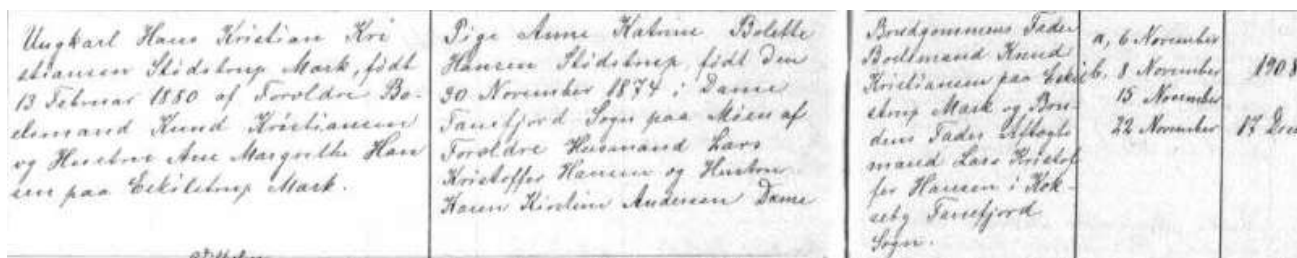 Ungkarl Hans Kristian Kri
stiansen Stödstrup Mark, født
13 Februar 1880 af Forældre Bo-
elsmand Knud Kristiansen
og Hustru Ane Margrethe Han
sen paa Eskilstrup Mark.
Pige Anne Katrine Bolette
Hansen Stödstrup, født den
30 November 1874 i Dame
Fanefjord Sogn paa Möen af
Forældre Husmand Lars
Kristoffer Hansen og Hustru
Karen Kirstine Andersen Dame
Brudgommens Fader
Boelsmand Knud
Kristiansen paa Eskil
strup Mark og Bru
dens Fader Aftægts
mand Lars Kristof
fer Hansen i Kok-
seby Fanefjord
Sogn.
a, 6 November
b, 8 November
15 November
22 November
1908
17 Dec